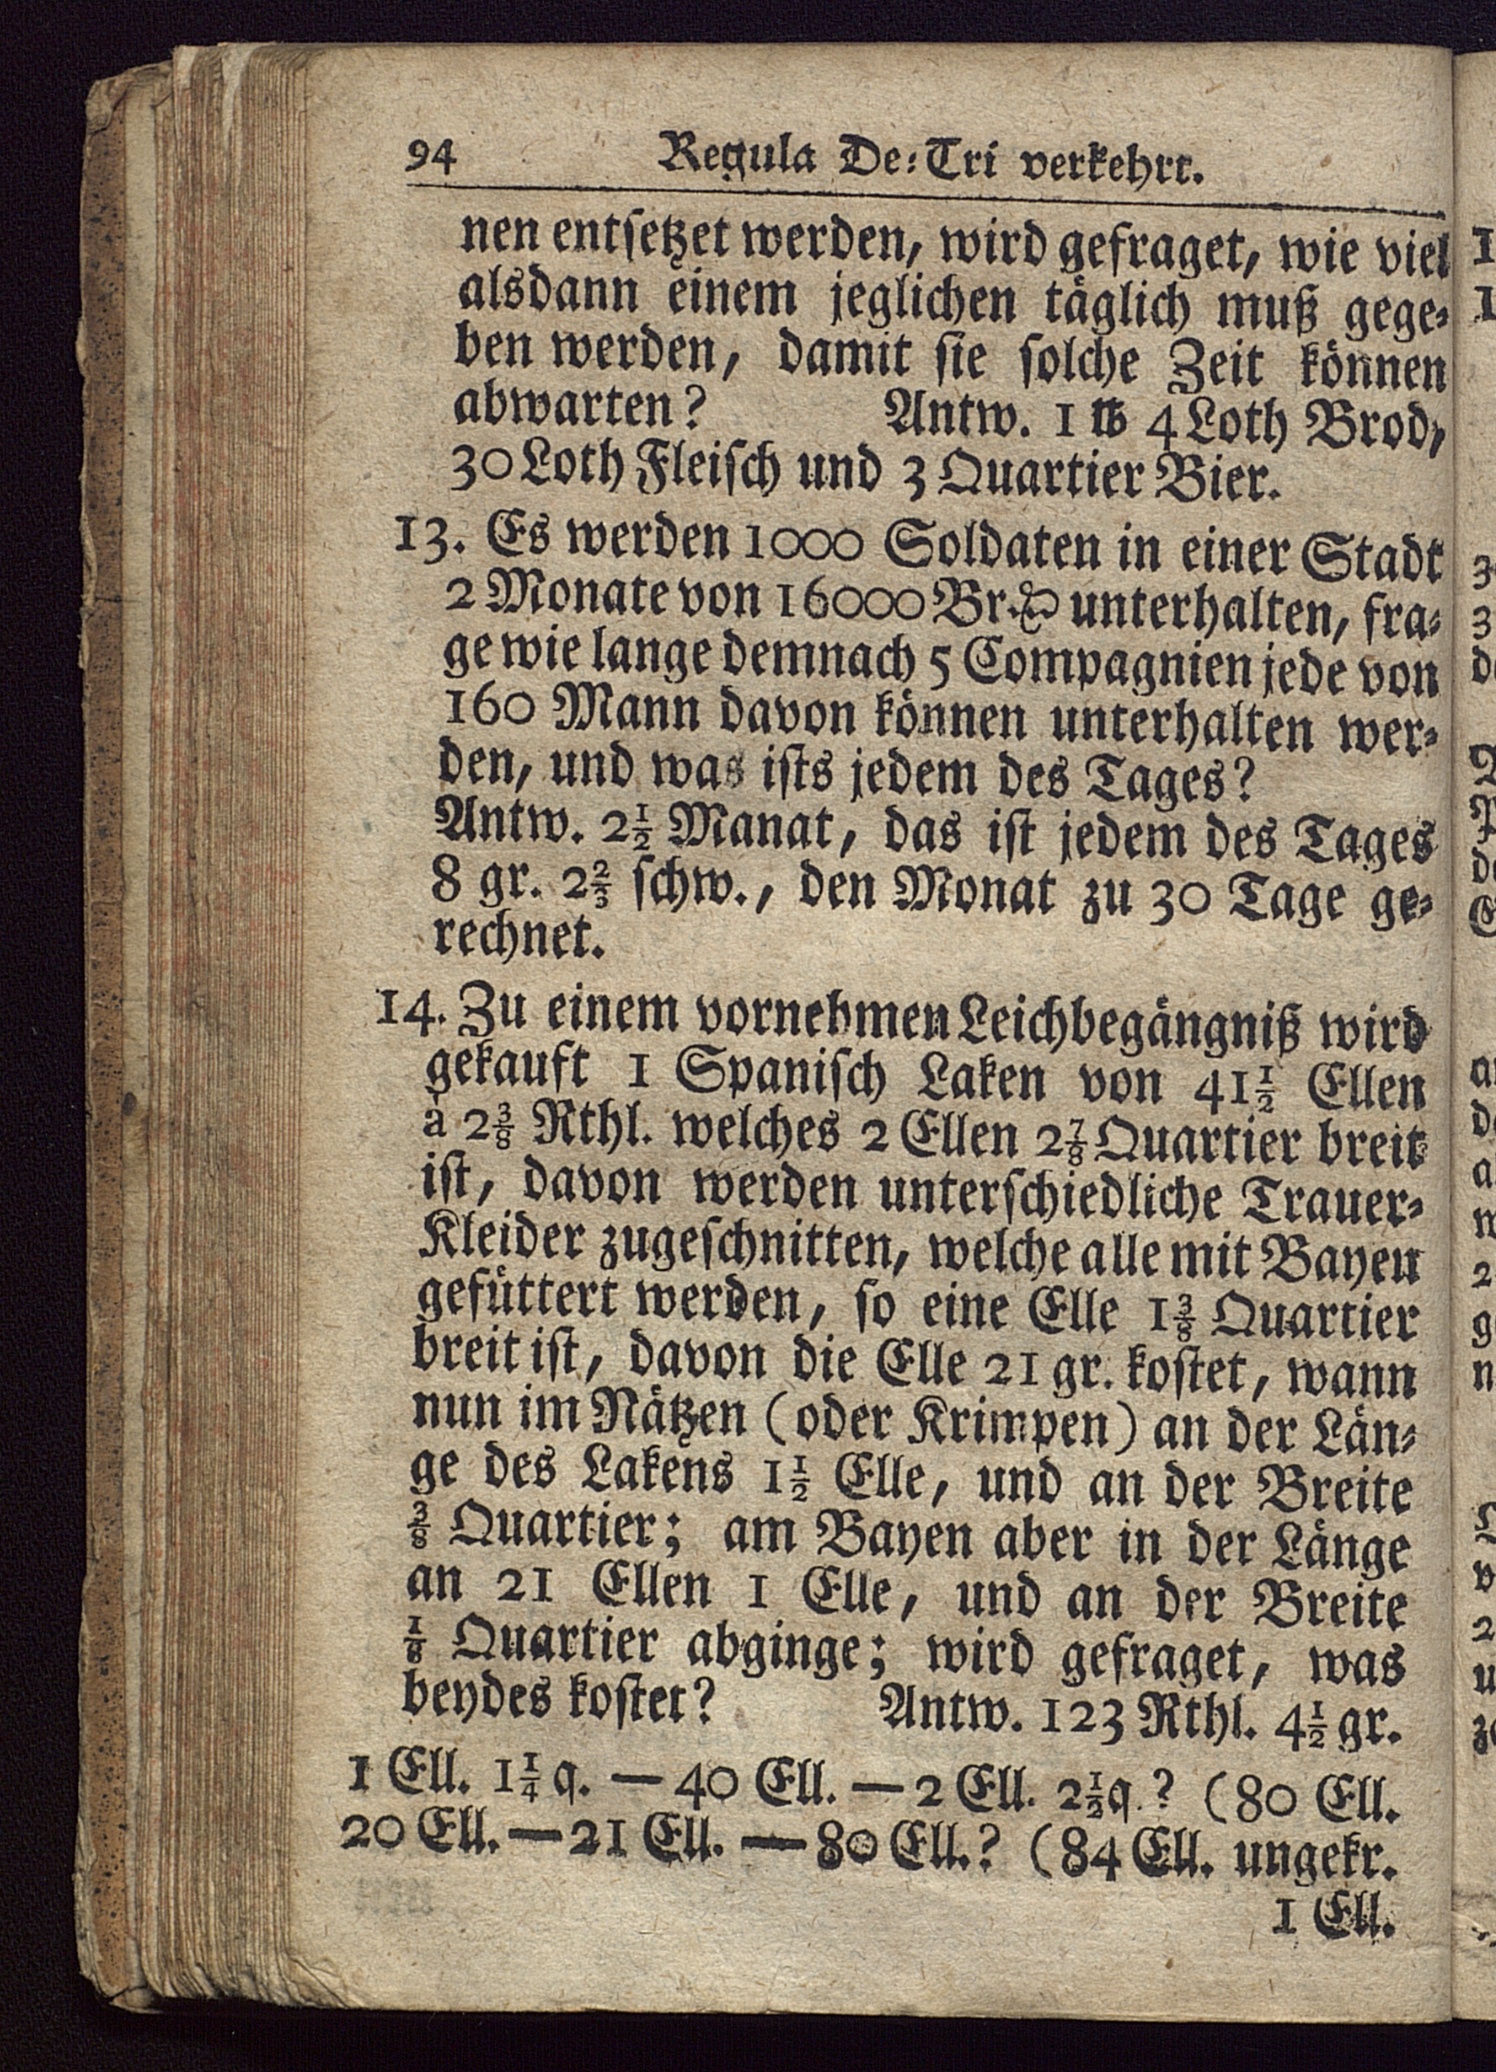 94 Regula De-Tri verkehrt.
nen entsetzet werden, wird gefraget, wie viel
alsdann einem jeglichen täglich muß gege-
ben werden, damit sie solche Zeit können
abwarten? Antw. 1 ℔ 4 Loth Brod,
30 Loth Fleisch und 3 Quartier Bier.
13. Es werden 1000 Soldaten in einer Stadt
2 Monate von 16000 Br. unterhalten, fra-
ge wie lange demnach 5 Compagnien jede von
160 Mann davon können unterhalten wer-
den, und was ists jedem des Tages?
Antw. 2½ Manat, das ist jedem des Tages
8 gr. 2⅔ schw., den Monat zu 30 Tage ge-
rechnet.
14. Zu einem vornehmen Leichbegängniß wird
gekauft 1 Spanisch Laken von 41½ Ellen
à 2⅜ Rthl. welches 2 Ellen 2⅞ Quartier breit
ist, davon werden unterschiedliche Trauer-
Kleider zugeschnitten, welche alle mit Bayen
gefüttert werden, so eine Elle 1⅜ Quartier
breit ist, davon die Elle 21 gr. kostet, wann
nun im Nätzen (oder Krimpen) an der Län-
ge des Lakens 1½ Elle, und an der Breite
⅜ Quartier; am Bayen aber in der Länge
an 21 Ellen 1 Elle, und an der Breite
⅛ Quartier abginge; wird gefraget, was
beydes kostet? Antw. 123 Rthl. 4½ gr.
1 Ell. 1¼ q. — 40 Ell. — 2 Ell. 2½ q.? (80 Ell.
20 Ell. — 21 Ell. — 80 Ell.? (84 Ell. ungekr.
1 Ell.